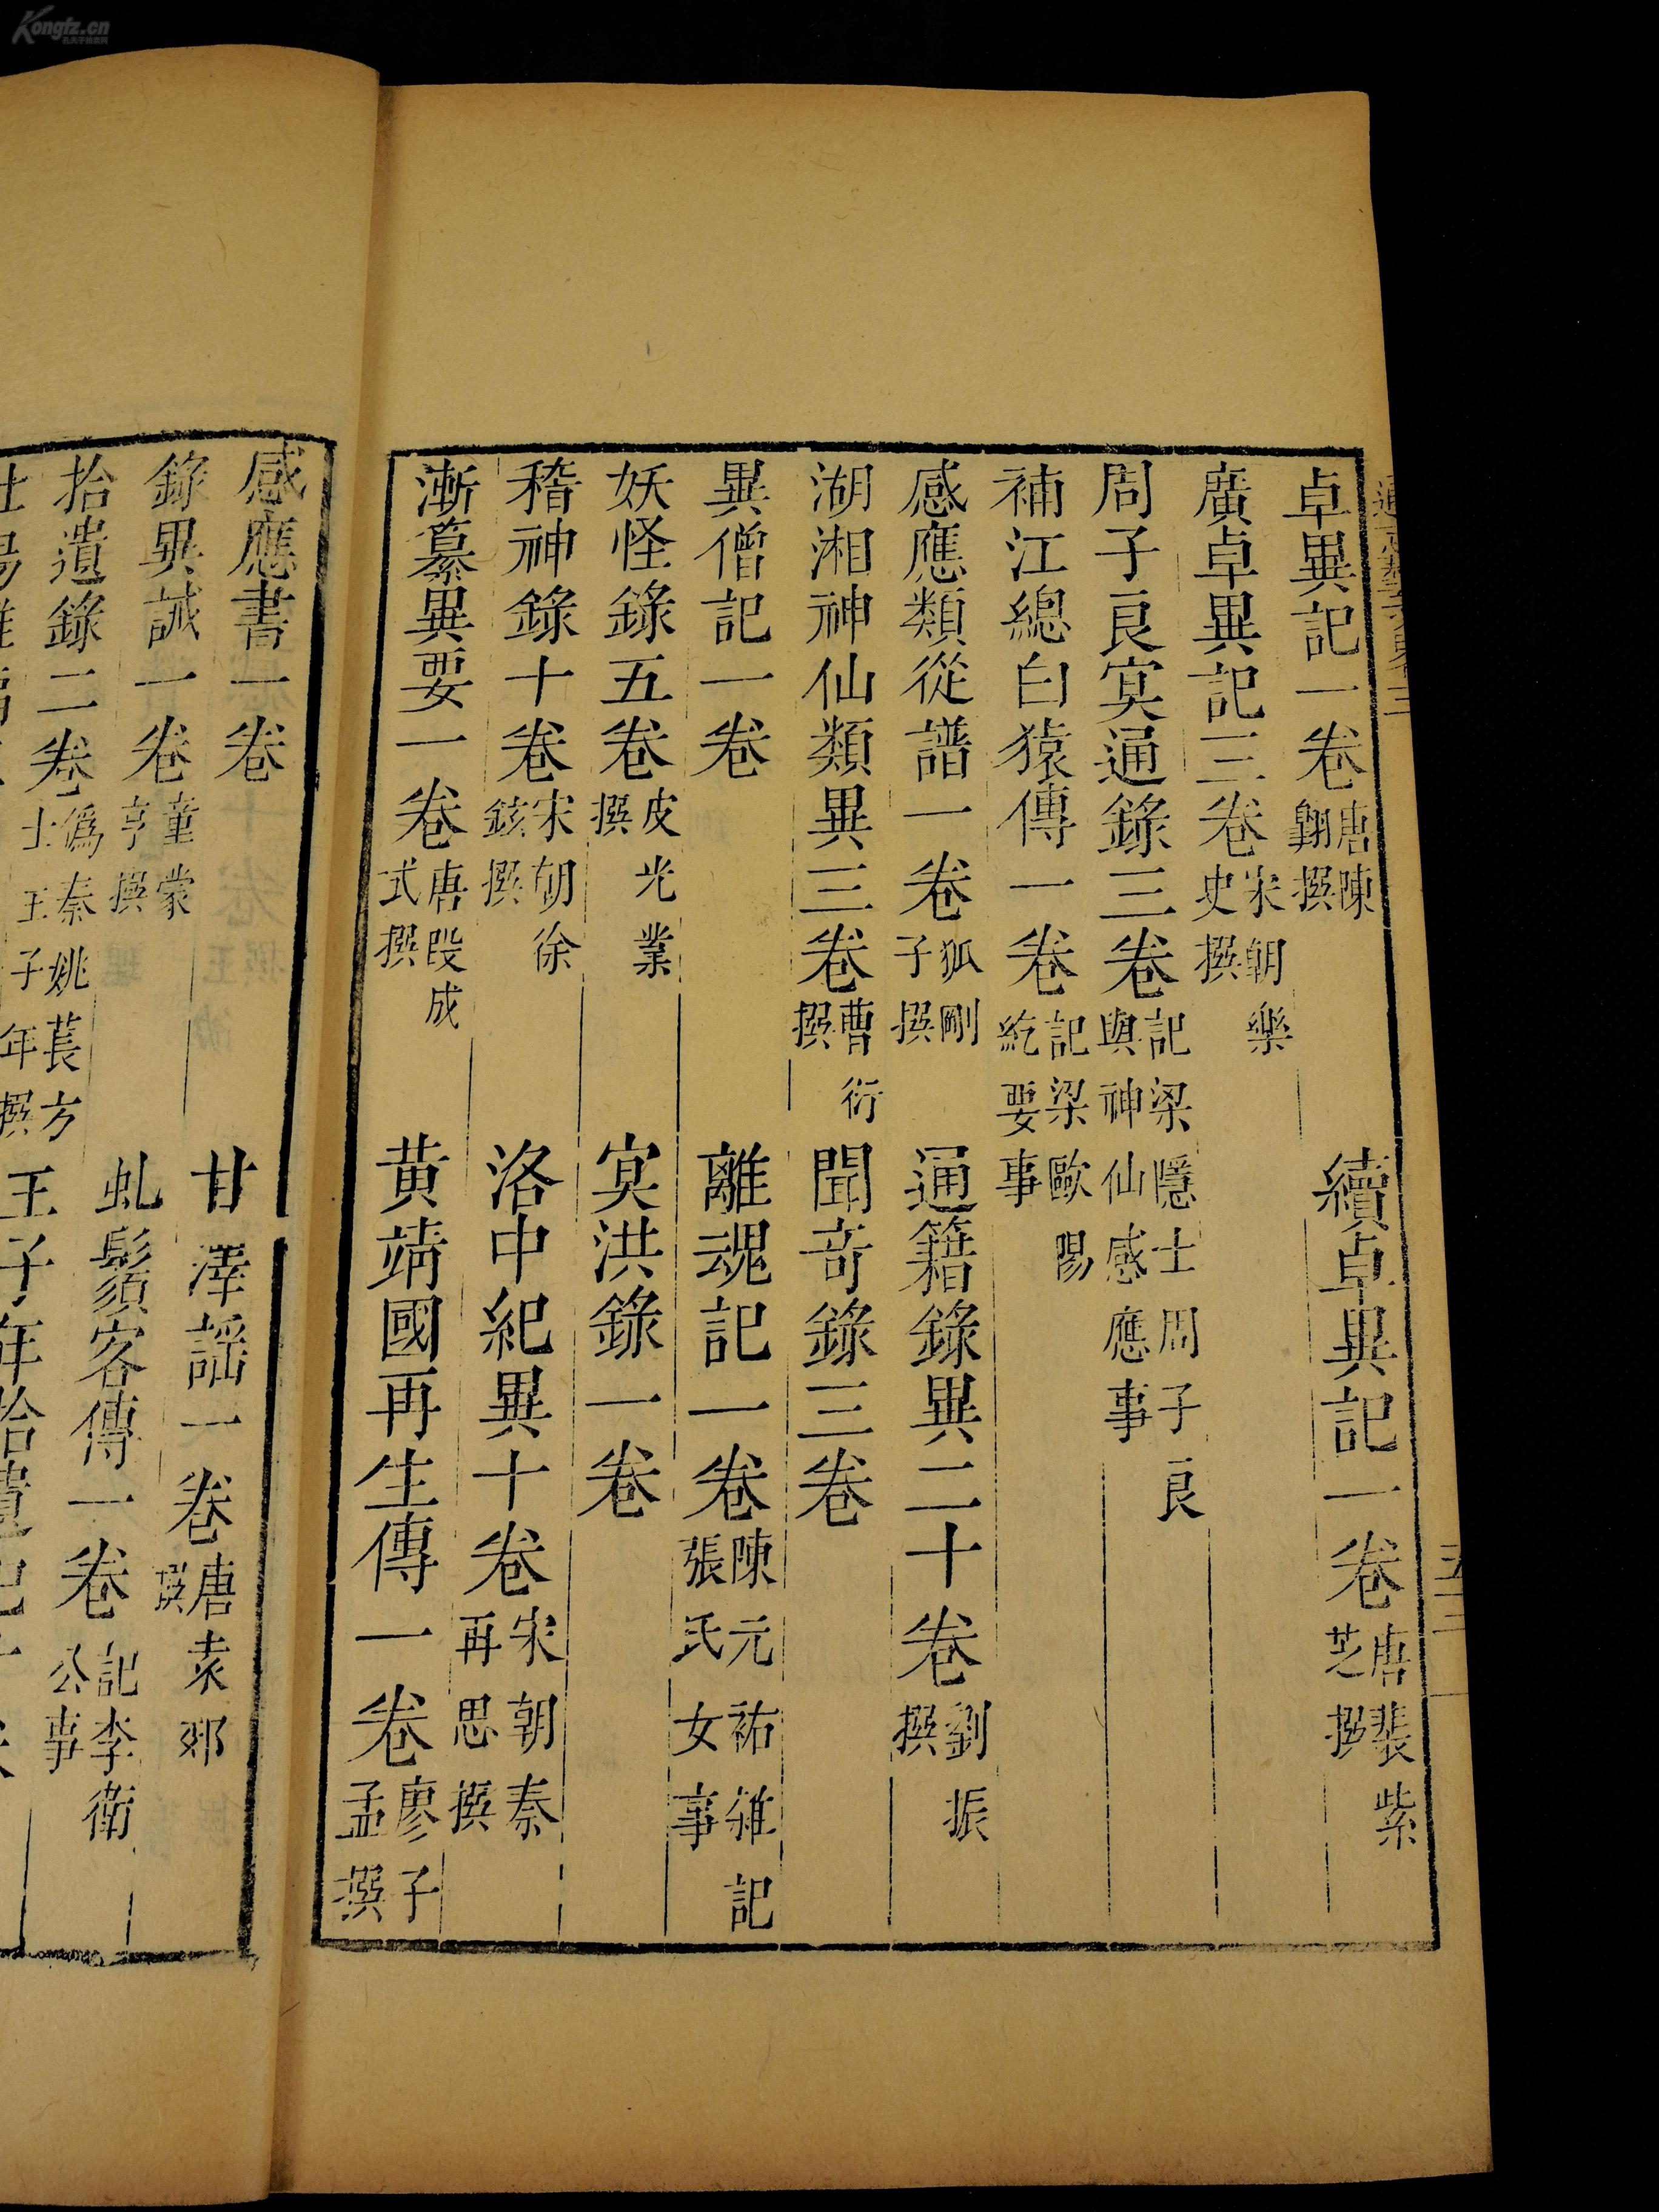 Kongfz.cn
卓異記一卷唐陳翺撰 續卓異記一卷唐裴紫芝撰
廣卓異記三卷宋朝樂史撰
周子良冥通錄三卷記梁隱士周子良與神仙感應事
補江總白猿傳一卷記梁歐陽紇要事
感應類從譜一卷狐剛子撰 通籍錄異二十卷劉振撰
湖湘神仙類異三卷曹衍撰 聞奇錄三卷
異僧記一卷 離魂記一卷陳元祐雜記張氏女事
妖怪錄五卷皮光業撰 冥洪錄一卷
稽神錄十卷宋朝徐鉉撰 洛中紀異十卷宋朝秦再思撰
漸纂異要一卷唐段成式撰 黃靖國再生傳一卷廖子孟撰
感應書一卷 甘澤謡一卷唐袁郊撰
錄異誡一卷童蒙亨撰 虬鬚客傳一卷記李衛公事
拾遺錄二卷僞秦姚萇方士王子年撰 王子年拾遺記十卷